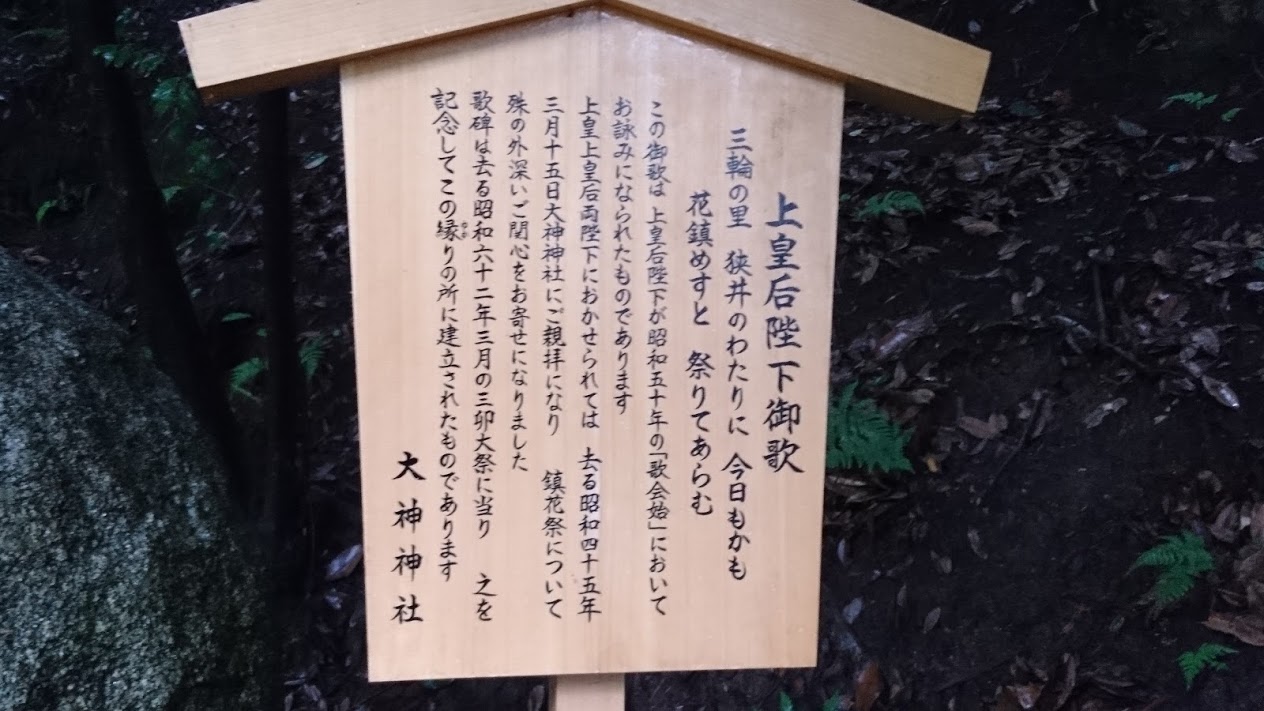 上皇后陛下御歌
三輪の里　狭井のわたりに　今日もかも
花鎮めすと　祭りてあらむ
この御歌は　上皇后陛下が昭和五十年の「歌会始」において
お詠みになられたものであります
上皇上皇后両陛下におかせられては　去る昭和四十五年
三月十五日大神神社にご親拝になり　鎮花祭について
殊の外深いご関心をお寄せになりました
歌碑は去る昭和六十二年三月の三卯大祭に当り　之を
記念してこの縁りの所に建立されたものであります
ゆか
大神神社